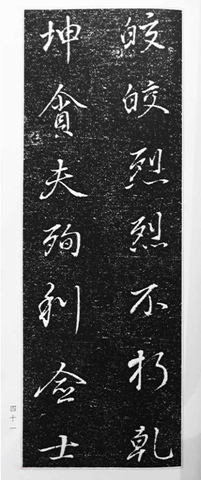 皎皎烈烈不朽乾
坤貪夫殉利佥士
四十一